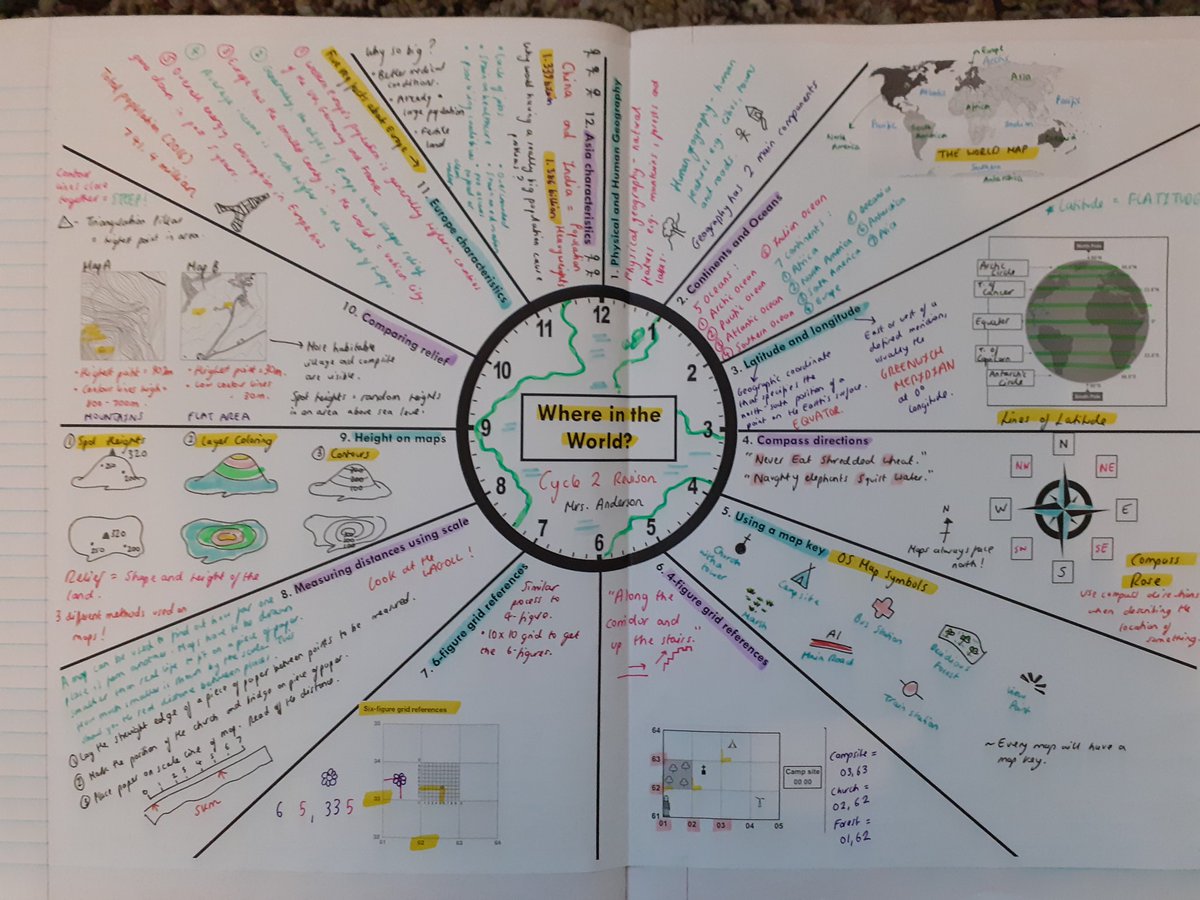 Where in the
World?
Cycle 2 Revison
Mrs. Anderson
12
1
2
3
4
5
6
7
8
9
10
11
1. Physical and Human Geography
Physical geography - natural
features e.g. mountains, forests and
Human geography - human
features e.g. cities, towns
and roads
Geography has 2 main components
2. Continents and Oceans
5 Oceans:
① Arctic Ocean
② Pacific Ocean
③ Atlantic Ocean
④ Southern Ocean
⑤ Indian Ocean
7 continents:
① Africa
② North America
③ South America
④ Europe
⑤ Oceania
⑥ Antarctica
⑦ Asia
Europe
Arctic
Asia
Atlantic
Africa
Pacific
Pacific
Indian
North
America
South
America
THE WORLD MAP
Southern
Antarctica
3. Latitude and longitude
Geographic coordinate
that specifies the
north south position of a
point on the Earth's surface.
EQUATOR.
East or west of a
defined meridian,
usually the
GREENWICH
MERIDIAN
at 0°
longitude.
* Latitude = FLATITUDE
North Pole
Arctic
Circle
T. of
Cancer
Equator
T. of
Capricorn
Antarctic
Circle
South Pole
Lines of Latitude
4. Compass directions
"Never Eat Shredded Wheat."
"Naughty elephants Squirt Water."
N
Maps always face
north!
N
NE
E
SE
S
SW
W
NW
Compass
Rose
Use compass directions
when describing the
location of
something
5. Using a map key
OS Map Symbols
Church
with a
tower
Campsite
Marsh
Bus Station
A1
Main Road
Decidious
Forest
Train station
View
Point
~Every map will have a
map key.
6. 4-figure grid references
"Along the
corridor and
up the stairs."
64
63
62
61
01
02
03
04
05
Camp site
00 00
Campsite =
03,63
Church =
02,62
Forest =
01,62
7. 6-figure grid references
Similar
process to
4-figure.
• 10x10 grid to get
the 6-figures.
Six-figure grid references
6 5, 335
8. Measuring distances using scale
Look at the
A map can be used to find out how far one
place is from another. Maps have to be drawn
smaller than real life to fit on a piece of paper.
How much smaller is shown by the scale. This
shows you the real distance between places.
① Lay the straight edge of a piece of paper between points to be measured.
② Mark the position of the church and bridge on piece of paper.
③ Place paper on scale line of map. Read of the distance.
0 1 2 3 4 5 6 7
5km
9. Height on maps
① Spot Heights
② Layer Coloring
③ Contours
320
200
300
200
100
320
250
200
Relief = Shape and height of the
land.
3 different methods used on
maps!
10. Comparing relief
Contour
lines close
together = STEEP!
- Triangulation Pillar
= highest point in area.
Map A
Map B
• Contour lines high=
MOUNTAINS
• Low contour lines
FLAT AREA
More habitable
village and campsite
are visible.
Spot heights = random heights
in an area above sea level.
11. Europe characteristics
Fun key facts about Europe
① Western Europe's population is generally
the UK, Germany and France.
② Generally the edges of Europe have
③ Europe has the smallest country in the world = vatican city.
④ Average income is much higher in the west of Europe.
⑤ Overall energy consumption in Europe has
gone down in past years.
Total population (2016)
741.4 million
12. Asia characteristics
China and India = Population
Heavyweights
1.386 billion
Why would having a really big population cause
problems?
• Overcrowded
Why so big?
• Better medical
conditions.
• Already a
large population
• Fertile
land